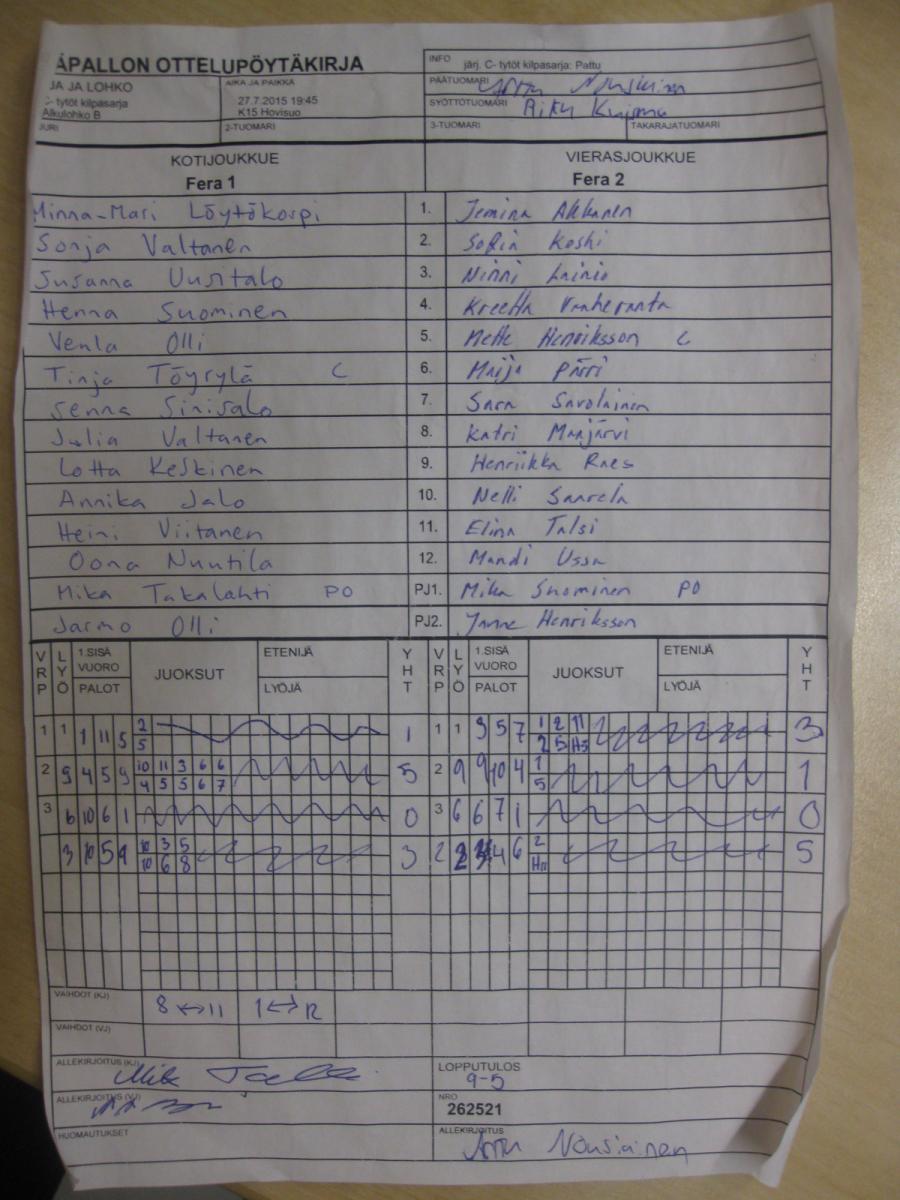 ÄPALLON OTTELUPÖYTÄKIRJA
INFO järj. C- tytöt kilpasarja: Pattu
JA JA LOHKO
C- tytöt kilpasarja
Alkulohko B
AIKA JA PAIKKA
27.7.2015 19:45
K15 Hovisuo
PÄÄTUOMARI Arttu Nousiainen
SYÖTTÖTUOMARI
JURI
2-TUOMARI
3-TUOMARI
TAKARAJATUOMARI
KOTIJOUKKUE VIERASJOUKKUE
Fera 1 Fera 2
Minna-Mari Löytökorpi 1. Jemina Akkanen
Sonja Valtanen 2. Sofia Koski
Susanna Uusitalo 3. Ninni Lainio
Henna Suominen 4. Kreetta Vanheranta
Venla Olli 5. Mette Henriksson C
Tinja Töyrylä C 6. Maija Pärri
Senna Sinisalo 7. Sara Savolainen
Julia Valtanen 8. Katri Maajärvi
Lotta Keskinen 9. Henriikka Raes
Annika Jalo 10. Nelli Saarela
Heini Viitanen 11. Elina Talsi
Oona Nuutila 12. Mandi Ussa
Mika Takalahti PO PJ1. Mika Suominen PO
Jarmo Olli PJ2. Janne Henriksson
VRP LYÖ 1.SISÄ VUORO PALOT JUOKSUT ETENIJÄ LYÖJÄ YHT VRP LYÖ 1.SISÄ VUORO PALOT JUOKSUT ETENIJÄ LYÖJÄ YHT
1 1 1 11 5 2 1 1 1 9 5 7 1 2 11 3
5 2 5 H5
2 9 4 5 9 10 11 3 6 6 5 2 9 9 10 4 1 1
4 5 5 6 7 5
3 6 10 6 1 0 3 6 6 7 1 0
3 10 5 9 10 3 5 3 2 4 6 2 5
10 6 8 H11
VAIHDOT (KJ) 8 ↔ 11 1 ↔ 12
VAIHDOT (VJ)
ALLEKIRJOITUS (KJ)
LOPPUTULOS
9-5
ALLEKIRJOITUS (VJ)
NRO
262521
HUOMAUTUKSET
ALLEKIRJOITUS
Arttu Nousiainen